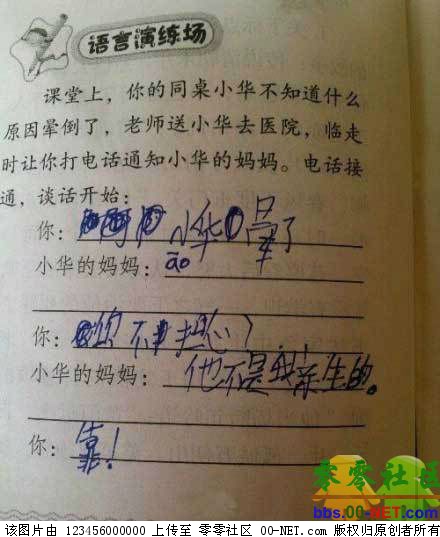 语言演练场
课堂上，你的同桌小华不知道什么
原因晕倒了，老师送小华去医院，临走
时让你打电话通知小华的妈妈。电话接
通，谈话开始：
你： 小华晕了
小华的妈妈： āo
你： 你不担心
小华的妈妈： 他不是我亲生的。
你： 靠！
零零社区
bbs.00-NET.com
该图片由 123456000000 上传至 零零社区 00-NET.com 版权归原创者所有